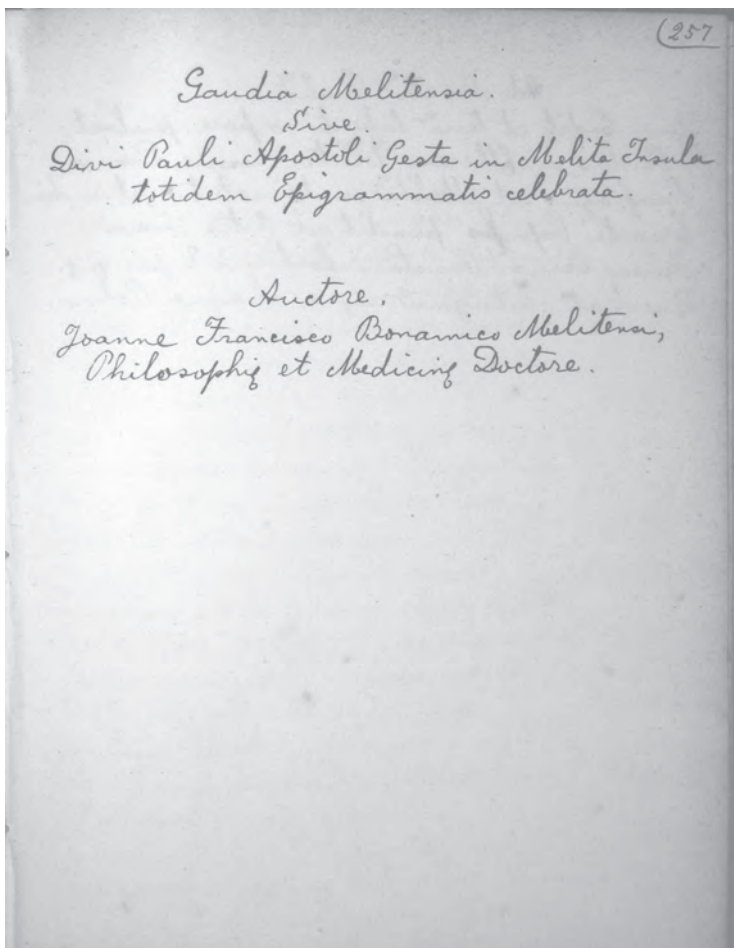 (257
Gaudia Melitensia.
Sive.
Divi Pauli Apostoli Gesta in Melita Insula
totidem Epigrammatis celebrata.
Auctore.
Joanne Francisco Bonamico Melitensi,
Philosophię et Medicinę Doctore.